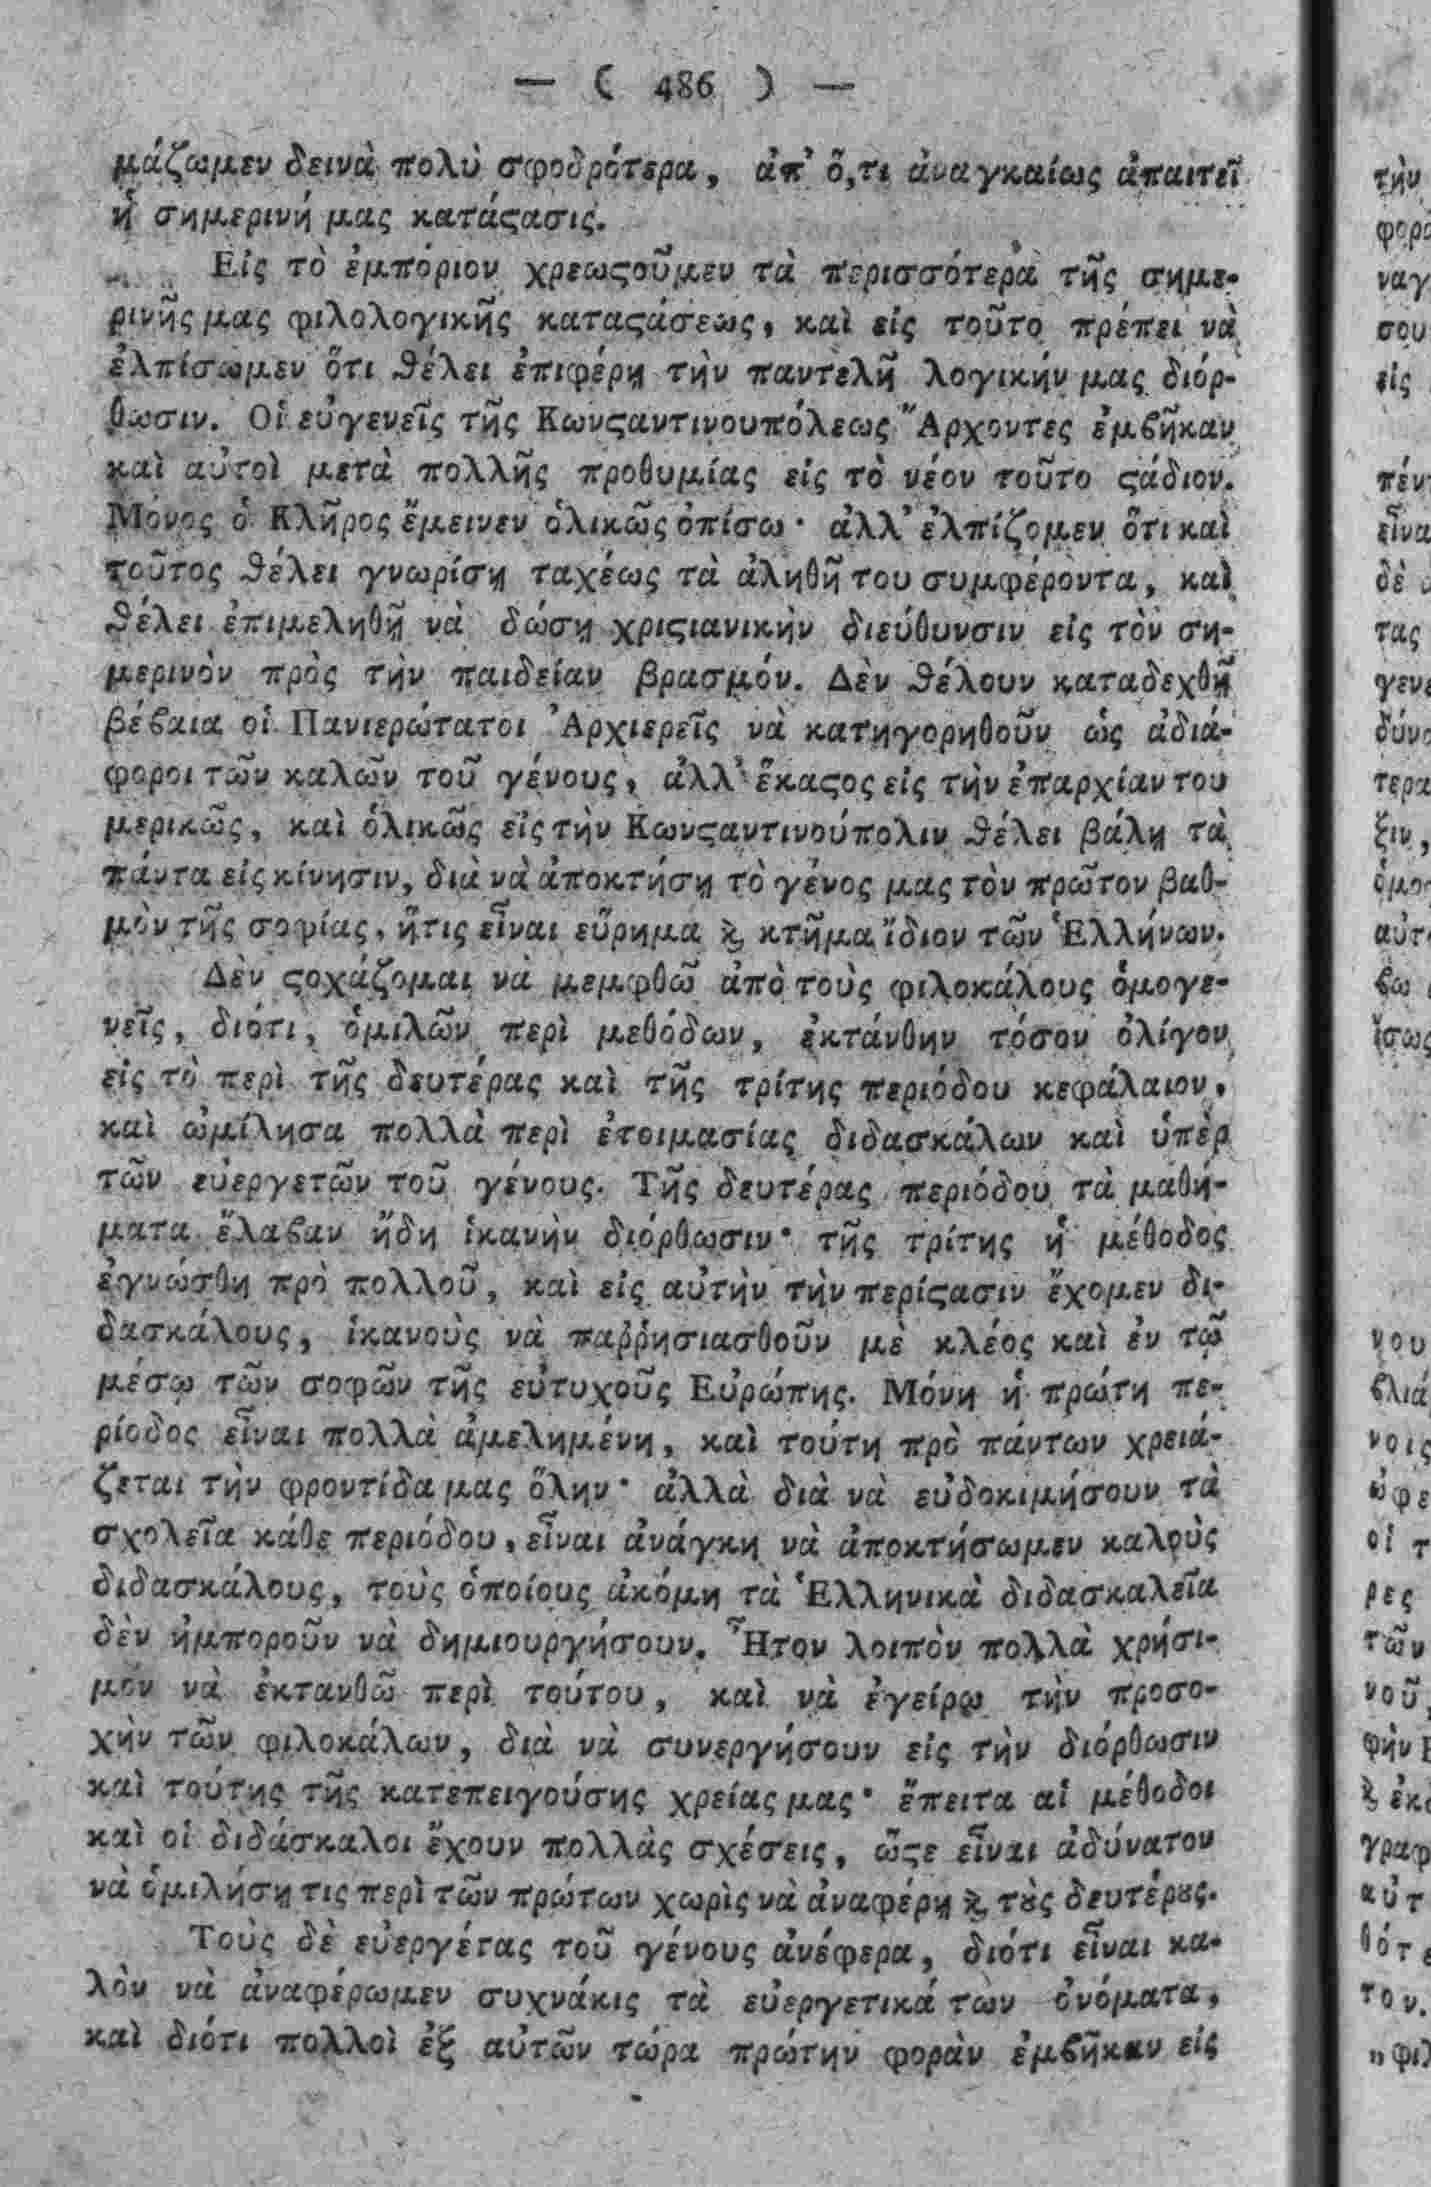 — ( 486 ) —
μάζωμεν δεινὰ πολὺ σφοδρότερα, ἀπ' ὅ,τι ἀναγκαίως ἀπαιτεῖ
ἡ σημερινή μας κατάϛασις.
Εἰς τὸ ἐμπόριον χρεωϛοῦμεν τὰ περισσότερα τῆς σημε-
ρινῆς μας φιλολογικῆς καταϛάσεως, καὶ εἰς τοῦτο πρέπει νὰ
ἐλπίσωμεν ὅτι ϑέλει ἐπιφέρῃ τὴν παντελῆ λογικήν μας διόρ-
θωσιν. Οἱ εὐγενεῖς τῆς Κωνϛαντινουπόλεως Ἄρχοντες ἐμϐῆκαν
καὶ αὐτοὶ μετὰ πολλῆς προθυμίας εἰς τὸ νέον τοῦτο ϛάδιον.
Μόνος ὁ Κλῆρος ἔμεινεν ὁλικῶς ὀπίσω· ἀλλ' ἐλπίζομεν ὅτι καὶ
τοῦτος ϑέλει γνωρίσῃ ταχέως τὰ ἀληθῆ του συμφέροντα, καὶ
ϑέλει ἐπιμεληθῇ νὰ δώσῃ χριϛιανικὴν διεύθυνσιν εἰς τὸν ση-
μερινὸν πρὸς τὴν παιδείαν βρασμόν. Δὲν ϑέλουν καταδεχθῇ
βέϐαια οἱ Πανιερώτατοι Ἀρχιερεῖς νὰ κατηγορηθοῦν ὡς ἀδιά-
φοροι τῶν καλῶν τοῦ γένους, ἀλλ' ἕκαϛος εἰς τὴν ἐπαρχίαν του
μερικῶς, καὶ ὁλικῶς εἰς τὴν Κωνϛαντινούπολιν ϑέλει βάλῃ τὰ
πάντα εἰς κίνησιν, διὰ νὰ ἀποκτήσῃ τὸ γένος μας τὸν πρῶτον βαθ-
μὸν τῆς σοφίας, ἥτις εἶναι εὕρημα ϗ κτῆμα ἴδιον τῶν Ἑλλήνων.
Δὲν ϛοχάζομαι νὰ μεμφθῶ ἀπὸ τοὺς φιλοκάλους ὁμογε-
νεῖς, διότι, ὁμιλῶν περὶ μεθόδων, ἐκτάνθην τόσον ὀλίγον
εἰς τὸ περὶ τῆς δευτέρας καὶ τῆς τρίτης περιόδου κεφάλαιον,
καὶ ὡμίλησα πολλὰ περὶ ἑτοιμασίας διδασκάλων καὶ ὑπὲρ
τῶν εὐεργετῶν τοῦ γένους. Τῆς δευτέρας περιόδου τὰ μαθή-
ματα ἔλαϐαν ἤδη ἱκανὴν διόρθωσιν· τῆς τρίτης ἡ μέθοδος
ἐγνώσθη πρὸ πολλοῦ, καὶ εἰς αὐτὴν τὴν περίϛασιν ἔχομεν δι-
δασκάλους, ἱκανοὺς νὰ παῤῥησιασθοῦν μὲ κλέος καὶ ἐν τῷ
μέσῳ τῶν σοφῶν τῆς εὐτυχοῦς Εὐρώπης. Μόνη ἡ πρώτη πε-
ρίοδος εἶναι πολλὰ ἀμελημένη, καὶ τούτη πρὸ πάντων χρειά-
ζεται τὴν φροντίδα μας ὅλην· ἀλλὰ διὰ νὰ εὐδοκιμήσουν τὰ
σχολεῖα κάθε περιόδου, εἶναι ἀνάγκη νὰ ἀποκτήσωμεν καλοὺς
διδασκάλους, τοὺς ὁποίους ἀκόμη τὰ Ἑλληνικὰ διδασκαλεῖα
δὲν ἠμποροῦν νὰ δημιουργήσουν. Ἦτον λοιπὸν πολλὰ χρήσι-
μον νὰ ἐκτανθῶ περὶ τούτου, καὶ νὰ ἐγείρω τὴν προσο-
χὴν τῶν φιλοκάλων, διὰ νὰ συνεργήσουν εἰς τὴν διόρθωσιν
καὶ τούτης τῆς κατεπειγούσης χρείας μας· ἔπειτα αἱ μέθοδοι
καὶ οἱ διδάσκαλοι ἔχουν πολλὰς σχέσεις, ὥϛε εἶναι ἀδύνατον
νὰ ὁμιλήσῃ τις περὶ τῶν πρώτων χωρὶς νὰ ἀναφέρῃ ϗ τȣ̀ς δευτέρȣς.
Τοὺς δὲ εὐεργέτας τοῦ γένους ἀνέφερα, διότι εἶναι κα-
λὸν νὰ ἀναφέρωμεν συχνάκις τὰ εὐεργετικά των ὀνόματα,
καὶ διότι πολλοὶ ἐξ αὐτῶν τώρα πρώτην φορὰν ἐμϐῆκαν εἰς